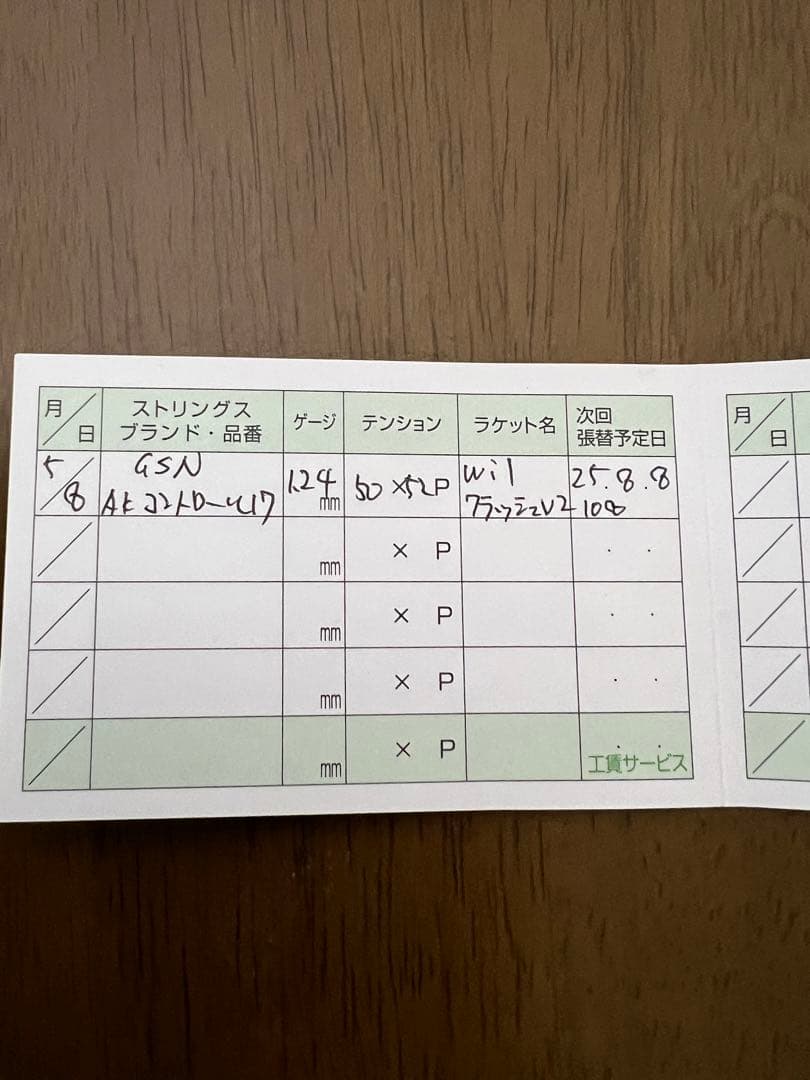 月/日 ストリングス ブランド・品番 ゲージ テンション ラケット名 次回 張替予定日
5/8 GSN 1.24mm 50×52P Wil 25.8.8
AKコントロール17 クラッシュV2 100
/ mm × P . .
/ mm × P . .
/ mm × P . .
/ mm × P . . 工賃サービス
月/日
/
/
/
/
/